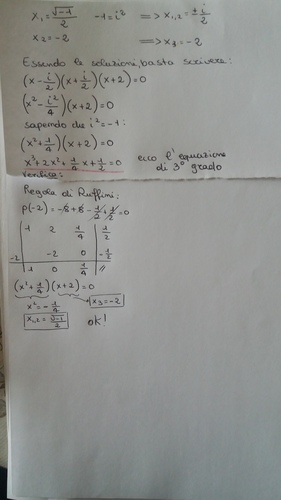 x₁ = √-1/2   -1 = i²   => x₁,₂ = ± i/2
x₂ = -2   => x₃ = -2
Essendo le soluzioni, basta scrivere:
(x - i/2)(x + i/2)(x+2) = 0
(x² - i²/4)(x+2) = 0
sapendo che i² = -1:
(x² + 1/4)(x+2) = 0
x³ + 2x² + 1/4 x + 1/2 = 0   ecco l'equazione
di 3° grado
Regola di Ruffini:
P(-2) = -8 + 8 - 1/2 + 1/2 = 0
1 2 1/4 | 1/2
-2 | -2 0 | -1/2
1 0 1/4 | //
(x² + 1/4)(x+2) = 0
x² = -1/4   x₃ = -2
x₁,₂ = √-1/2   ok!